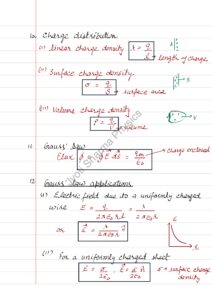 10. Charge distribution
(i) Linear charge density λ = q/L → length of charge
(ii) Surface charge density
σ = q/S → surface area
(iii) Volume charge density
ρ = q/V → volume
11. Gauss' Law
Flux φ = ∮ E⃗.ds⃗ = q_en/ε₀ → charge enclosed
12. Gauss' law applications
(i) Electric field due to a uniformly charged
wire E = q/2πε₀rL = λ/2πε₀r
or E⃗ = λ/2πε₀r r̂
(ii) For a uniformly charged sheet
E = σ/2ε₀, E⃗ = σ/2ε₀ n̂ σ → surface charge
density
Sharma Physics